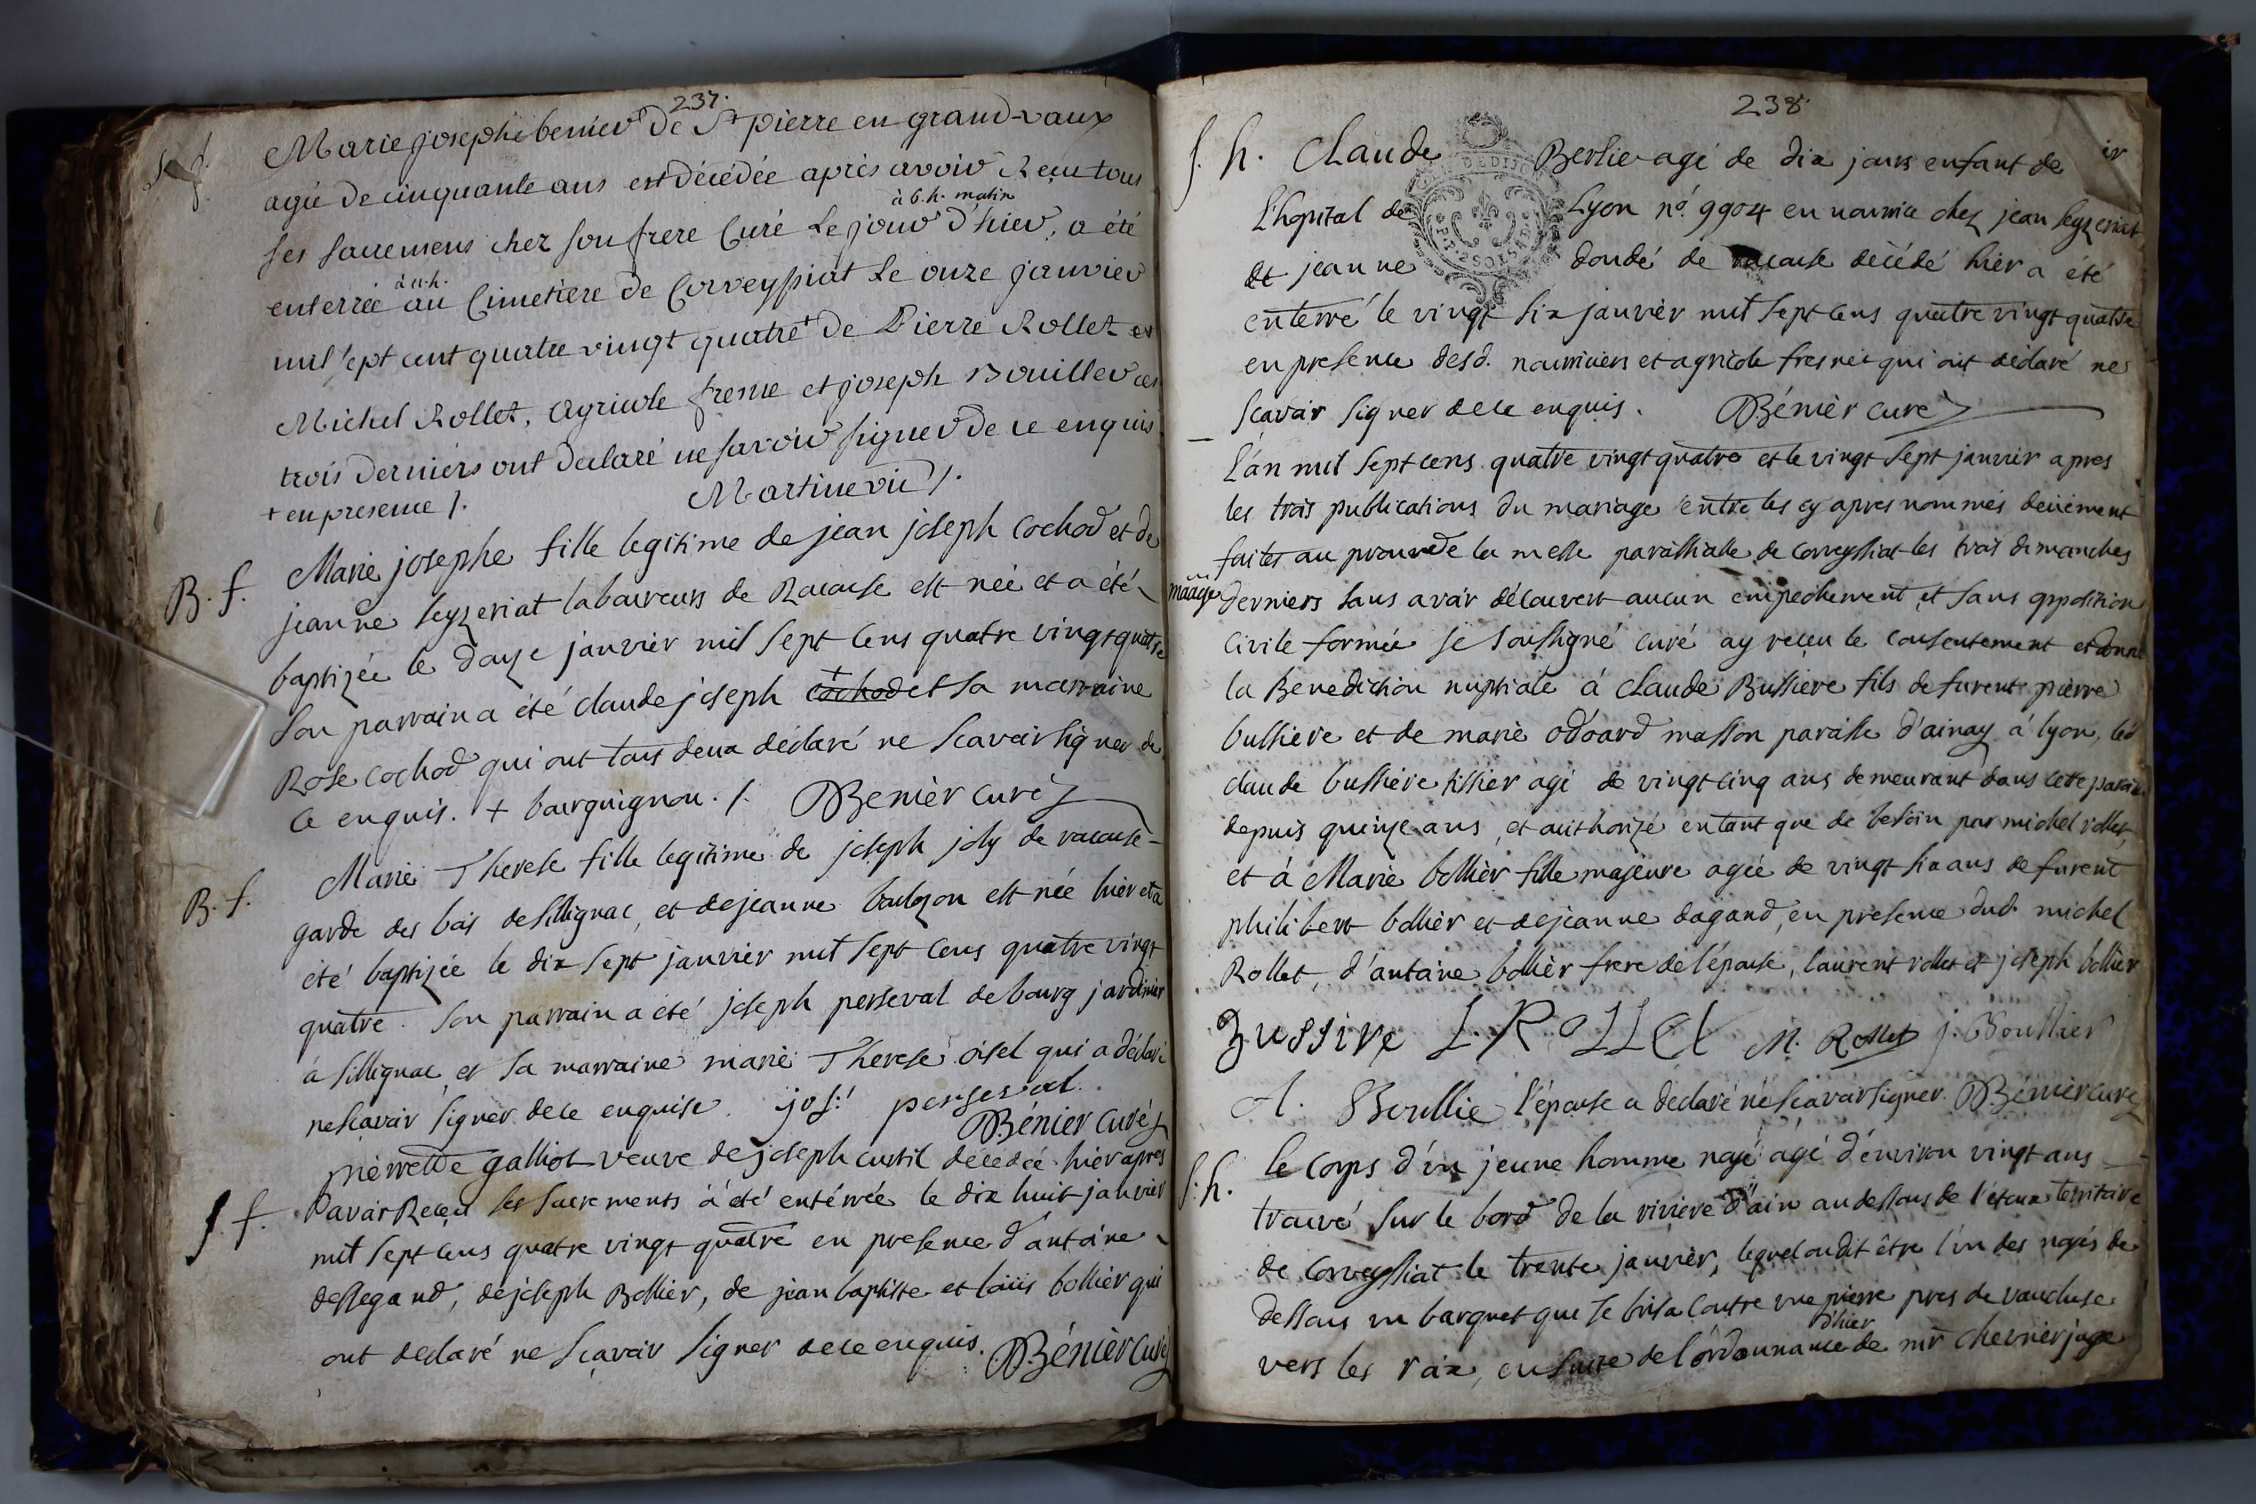 237.
S. f. Marie josephe benier de St pierre en grand-vaux
agée de cinquante ans est décédée après avoir Reçu tous
ses sacremens chez son frere Curé Le jour d'hier, à 6. h. matin a été
enterrée à 11. h. au Cimetiere de Corveyssiat Le onze janvier
mil sept cent quatre vingt quatre + de Pierre Rollet et
Michel Rollet, agricole frenne et joseph Bouiller ces
trois derniers ont declaré ne savoir signer de ce enquis
+ en presence /. Martinevié /.
B. f. Marie josephe fille legitime de jean joseph cochod et de
jeanne seyzeriat laboureurs de Racouse est née et a été
baptizée le douze janvier mil sept cens quatre vingt quatre
son parrain a été claude joseph + cochod et sa marraine
Rose cochod qui ont tous deux déclaré ne scavoir signer de
ce enquis. + bourguignon. /. Benier curé
B. f. Marie Therese fille legitime de joseph joly de racouse
garde des bois de sillignac, et de jeanne boulzon est née hier et a
été baptizée le dix sept janvier mil sept cens quatre vingt
quatre. son parrain a été joseph perseval de bourg jardinier
à sillignac, et sa marraine marie Therese oisel qui a déclaré
ne scavoir signer de ce enquise. jos: perseval.
Bénier curé
S. f. pierrette galliot veuve de joseph curtil décédée hier apres
avoir Reçu ses sacrements a été enterrée le dix huit janvier
mil sept cens quatre vingt quatre en presence d'antoine
dessegand, de joseph Bollier, de jean baptiste et loüis bollier qui
ont declaré ne sçavoir signer de ce enquis. Bénier Curé
238.
S. h. Claude Berlie agé de dix jours enfant de
l'hopital de Lyon nº. 9904 en nourrice chez jean seyzeriat
et jeanne doudé de racouse décédé hier a été
enterré le vingt six janvier mil sept cens quatre vingt quatre
en presence desd. nourriciers et agricole fresne qui ont déclaré ne
scavoir signer de ce enquis. Bénier curé
L'an mil sept cens quatre vingt quatre et le vingt sept janvier apres
les trois publications du mariage entre les cy apres nommés deüement
faites au prone de la messe paroissialle de corveyssiat les trois dimanches
maãge derniers sans avoir découvert aucun empechement, et sans opposition
civile formée je soussigné curé ay reçeu le consentement et donné
la Benediction nuptiale à claude Bussiere fils de furent pierre
bussiere et de marie odoard masson paroisse d'ainay à lyon, led
claude bussiere tissier agé de vingt cinq ans demeurant dans cette paroisse
depuis quinze ans, et authorizé entant que de besoin par michel rollet,
et à Marie bollier fille majeure agée de vingt six ans de furent
philibert bollier et de jeanne dagand, en presence dud. michel
Rollet, d'antoine bollier frere de l'épouse, laurent rollet et joseph bollier
Bussire L. ROLLet M. Rollet j. Boullier
A. Boullie l'épouse a déclaré ne scavoir signer Bénier curé
S. h. le corps d'un jeune homme noyé agé d'environ vingt ans
trouvé sur le bord de la riviere d'ain au dessous de l'étaux territoire
de corveyssiat le trente janvier, lequel on dit être l'un des noyés de
dessous un barquet que se brisa contre une pierre pres de vaucluse
vers les roix, ensuite de l'ordonnance d'hier de mr chevrier juge